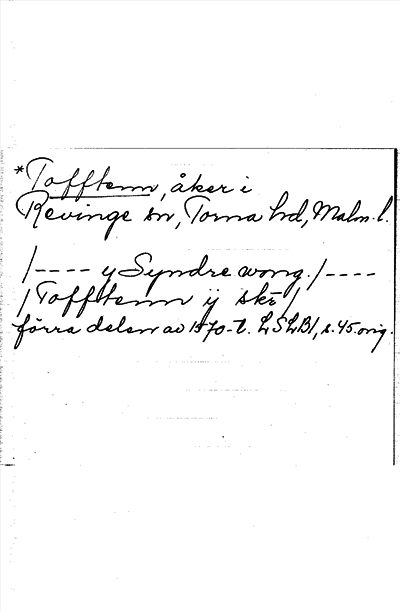 *Tofftenn, åker i
Revinge sn, Torna hd, Malm. l.
/---- y Syndre wong. /----
/Tofftenn ij skr/
förra delen av 1570-t. LSLB1, s. 45. orig.